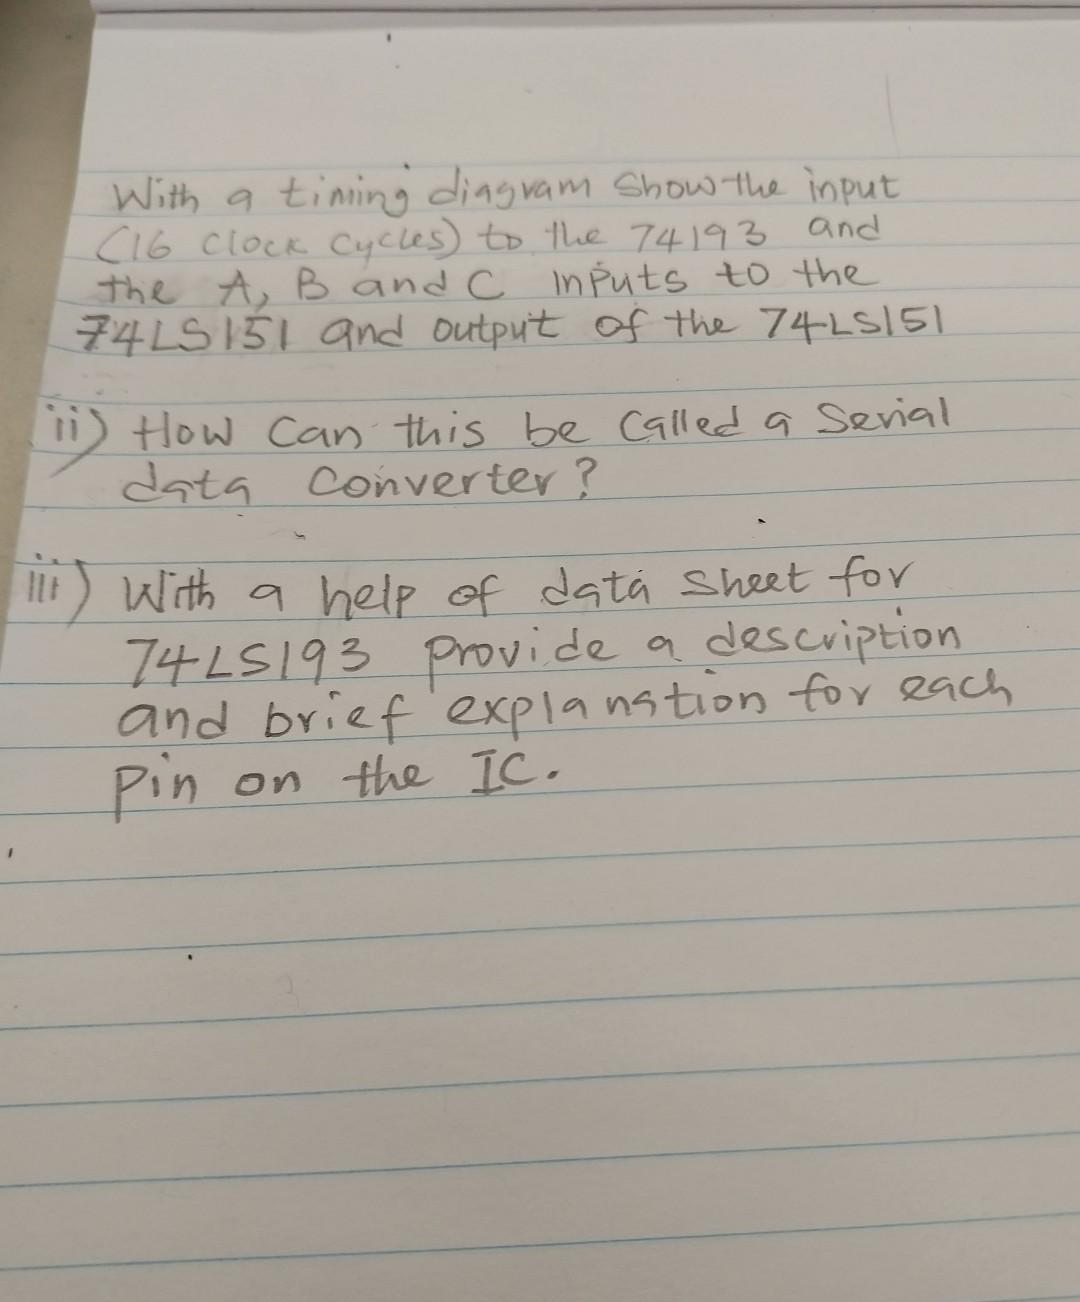 With a timing diagram show the input
(16 clock cycles) to the 74193 and
the A, B and C inputs to the
74LS151 and output of the 74LS151
ii) How can this be called a serial
data converter?
iii) With a help of data sheet for
74LS193 provide a description
and brief explanation for each
pin on the IC.